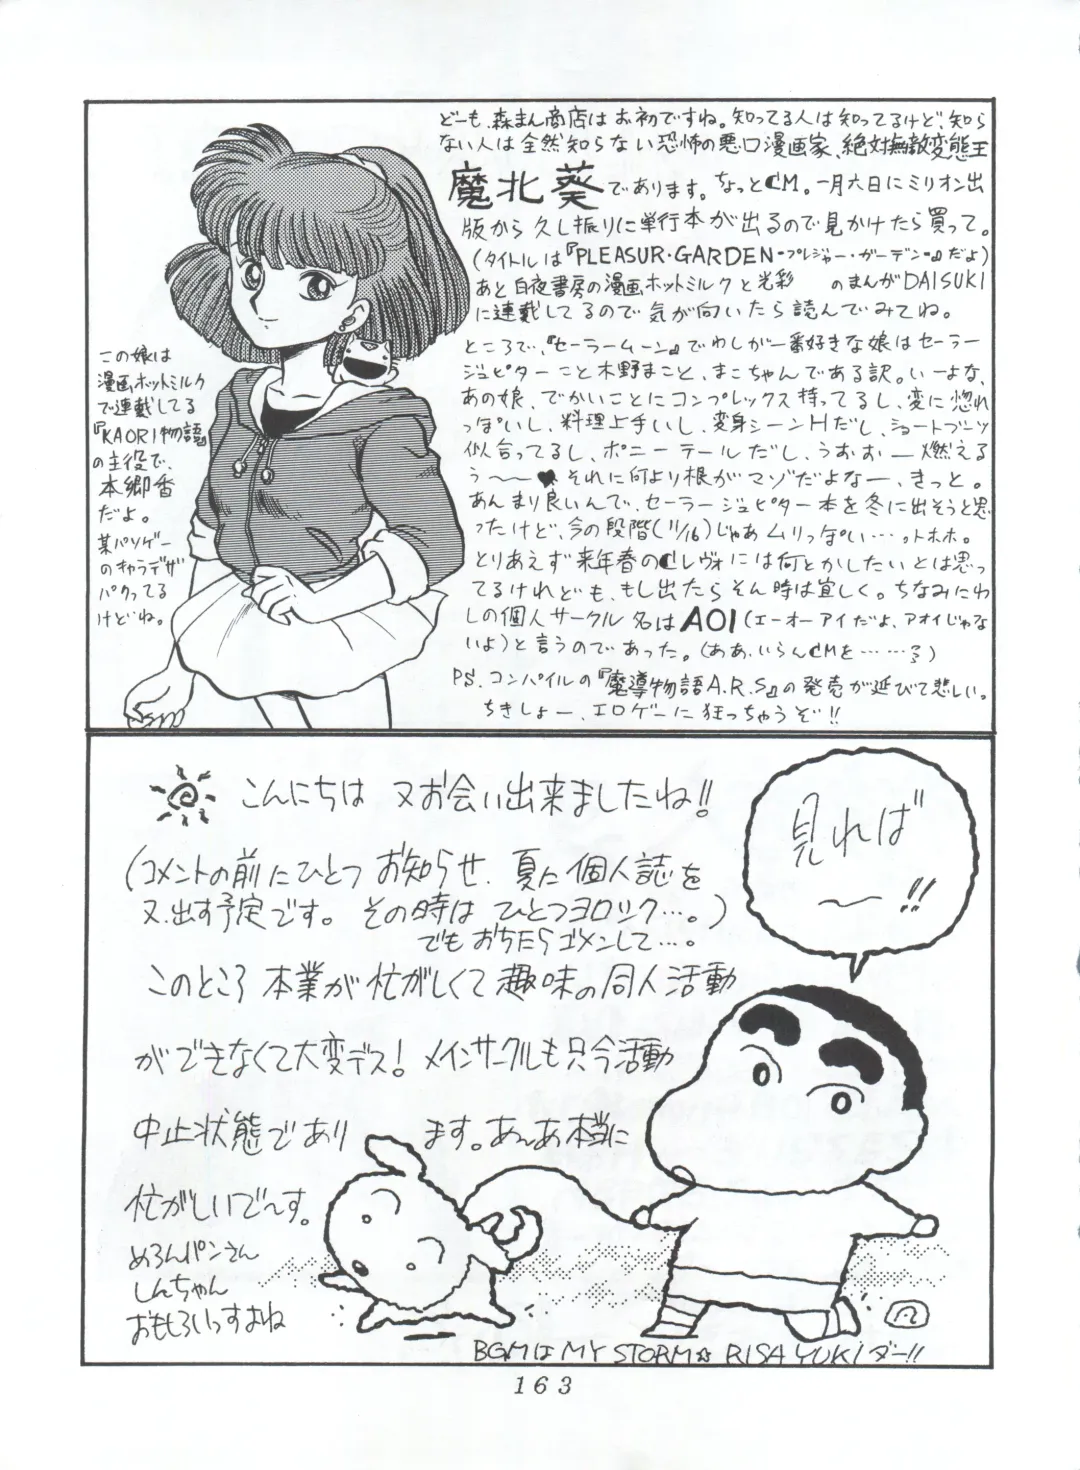 どーも、森まん商店はお初ですね。知ってる人は知ってるけど、知ら
ない人は全然知らない恐怖の悪口漫画家、絶対無敵変態王
魔北葵であります。なっとCM。一月六日にミリオン出
版から久し振りに単行本が出るので見かけたら買って。
(タイトルは『PLEASUR・GARDEN-プレジャー・ガーデン-』だよ)
あと白夜書房の漫画ホットミルクと光彩 のまんがDAISUKI
に連載してるので気が向いたら読んでみてね。
ところで、『セーラームーン』でわしが一番好きな娘はセーラー
ジュピターこと木野まこと、まこちゃんである訳。いーよな、
あの娘、でかいことにコンプレックス持ってるし、変に惚れ
っぽいし、料理上手いし、変身シーンHだし、ショートブーツ
似合ってるし、ポニーテールだし、うおぉー燃える
う〜〜♥それに何より根がマゾだよなー、きっと。
あんまり良いんで、セーラージュピター本を冬に出そうと思
ったけど、今の段階(11/16)じゃあムリっぽい…。トホホ。
とりあえず来年春のCレヴォには何とかしたいとは思っ
てるけれども、もし出たらそん時は宜しく。ちなみにわ
しの個人サークル名はAOI(エーオーアイだよ、アオイじゃな
いよ)と言うのであった。(ああ、いらんCMを……る)
PS.コンパイルの『魔導物語A.R.S』の発売が延びて悲しい。
ちきしょー、エロゲーに狂っちゃうぞ!!
この娘は
漫画ホットミルク
で連載してる
『KAORI物語』
の主役で、
本郷香
だよ。
某パソゲー
のキャラデザ
パクってる
けどね。
こんにちは 又お会い出来ましたね!!
(コメントの前にひとつ お知らせ、夏に個人誌を
又、出す予定です。その時は ひとつヨロシク…。)
でもおちたらゴメンして…。
このところ 本業が忙がしくて趣味の同人活動
ができなくて大変デス! メインサークルも只今活動
中止状態であり ます。あ〜あ本当に
忙がしいで〜す。
めろんパンさん
しんちゃん
おもしろいっすよね
見れば
〜!!
BGMはMY STORM☆ RISA YUKIダー!!
163